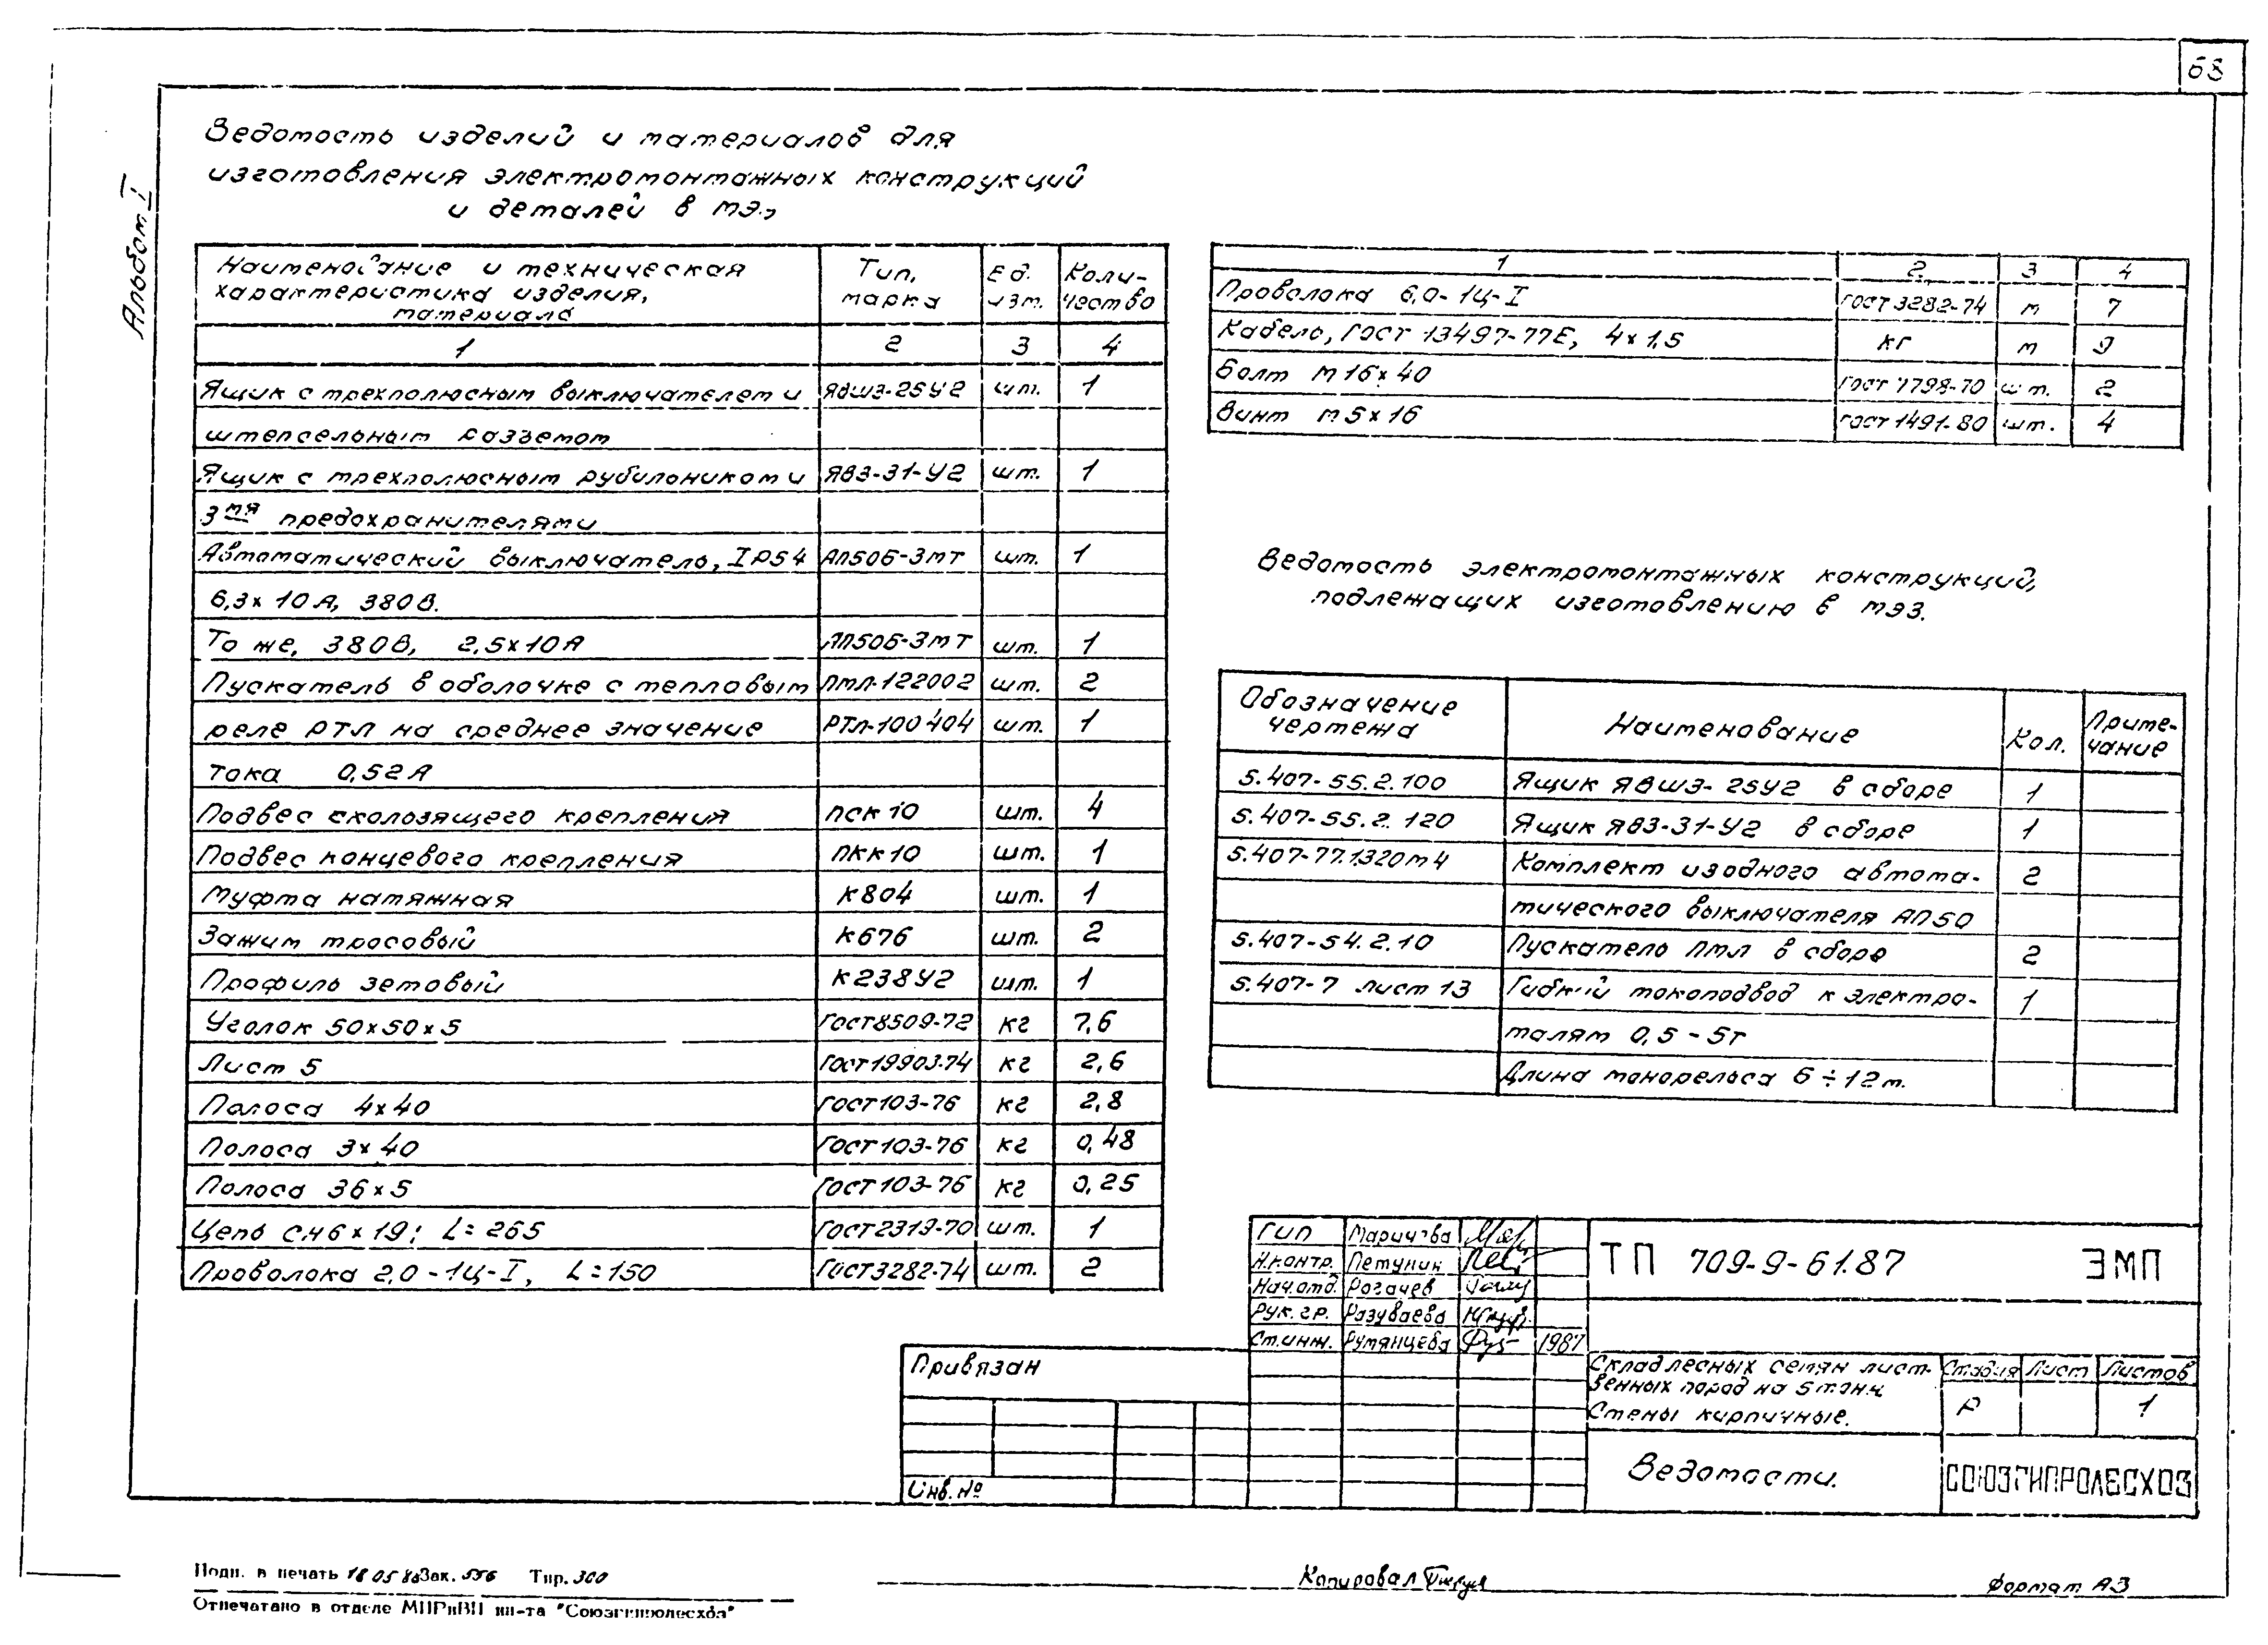 68
Альбом I
Ведомость изделий и материалов для
изготовления электромонтажных конструкций
и деталей в МЭЗ
Наименование и техническая характеристика изделия, материала | Тип, марка | Ед. изм. | Количество
1 | 2 | 3 | 4
Ящик с трехполюсным выключателем и | ЯВШ3-25У2 | шт. | 1
штепсельным разъемом
Ящик с трехполюсным рубильником и | ЯВ3-31-У2 | шт. | 1
3мя предохранителями
Автоматический выключатель, IP54 | АП50Б-3МТ | шт. | 1
6,3х10А, 380В.
То же, 380В, 2,5х10А | АП50Б-3МТ | шт. | 1
Пускатель в оболочке с тепловым | ПМЛ-122002 | шт. | 2
реле РТЛ на среднее значение | РТЛ-100404 | шт. | 1
тока 0,52А
Подвес скользящего крепления | ПСК10 | шт. | 4
Подвес концевого крепления | ПКК10 | шт. | 1
Муфта натяжная | К804 | шт. | 1
Зажим тросовый | К676 | шт. | 2
Профиль зетовый | К238У2 | шт. | 1
Уголок 50х50х5 | ГОСТ8509-72 | кг | 7,6
Лист 5 | ГОСТ19903-74 | кг | 2,6
Полоса 4х40 | ГОСТ103-76 | кг | 2,8
Полоса 3х40 | ГОСТ103-76 | кг | 0,48
Полоса 36х5 | ГОСТ103-76 | кг | 0,25
Цепь СН6х19; L=265 | ГОСТ2319-70 | шт. | 1
Проволока 2,0-1Ц-I, L=150 | ГОСТ3282-74 | шт. | 2
1 | 2 | 3 | 4
Проволока 6,0-1Ц-I | ГОСТ3282-74 | м | 7
Кабель, ГОСТ 13497-77Е, 4х1,5 | КГ | м | 9
Болт М16х40 | ГОСТ 7798-70 | шт. | 2
Винт М5х16 | ГОСТ1491-80 | шт. | 4
Ведомость электромонтажных конструкций,
подлежащих изготовлению в МЭЗ.
Обозначение чертежа | Наименование | Кол. | Примечание
5.407-55.2.100 | Ящик ЯВШ3-25У2 в сборе | 1
5.407-55.2.120 | Ящик ЯВ3-31-У2 в сборе | 1
5.407-77.1.320м4 | Комплект изодного автома- | 2
тического выключателя АП50
5.407-54.2.10 | Пускатель ПМЛ в сборе | 2
5.407-7 лист 13 | Гибкий токоподвод к электро- | 1
талям 0,5-5т
Длина монорельса 6÷12м.
ГИП | Маричева
Н.контр. | Петунин
Нач.отд. | Рогачев
Рук.гр. | Разуваева
Ст.инж. | Румянцева | 1987
ТП 709-9-61.87 ЭМП
Склад лесных семян лист-
венных пород на 5 тонн.
Стены кирпичные.
Стадия | Лист | Листов
Р | 1
Ведомости.
СОЮЗГИПРОЛЕСХОЗ
Привязан
Инв.№
Подп. в печать 18 05 8 Зак. 556 Тир. 300
Отпечатано в отделе МПРиВП ин-та "Союзгипролесхоз"
Копировал
Формат А3